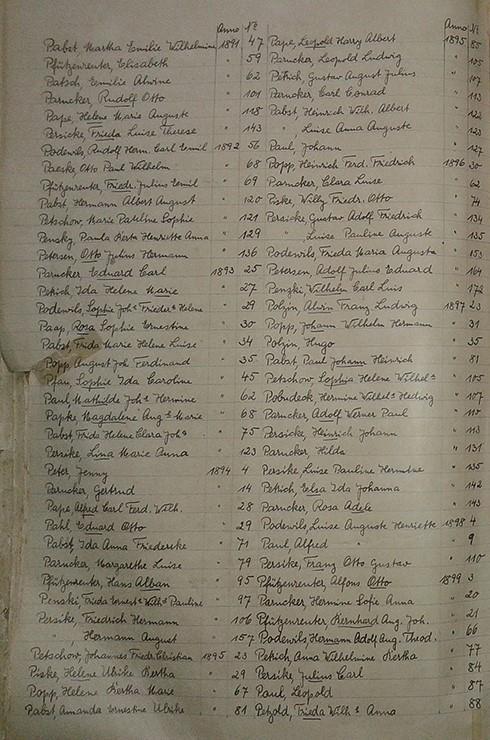 Anno No
Pabst, Martha Emilie Wilhelmine 1891 47
Pfützenreuter, Elisabeth " 59
Patsch, Emilie Alwine " 62
Parncker, Rudolf Otto " 101
Pape, Helene Marie Auguste " 118
Persicke, Frieda Luise Therese " 143
Podewils, Rudolf Herm. Carl Emil 1892 56
Paeske, Otto Paul Wilhelm " 68
Pfützenreuter, Friedr. Julius Emil " 69
Pabst, Hermann Albert August " 120
Petschow, Marie Pauline Sophie " 121
Pensky, Paula Berta Henriette Anna " 129
Petersen, Otto Julius Hermann " 136
Parncker, Eduard Carl 1893 25
Petrich, Ida Helene Marie " 27
Podewils, Sophie Joh. Frieder. Helene " 29
Paap, Rosa Sophie Ernestine " 30
Pabst, Frida Marie Helene Luise " 34
Popp, August Joh. Ferdinand " 35
Pfau, Sophie Ida Caroline " 45
Paul, Mathilde Joh. Hermine " 62
Papke, Magdalene Aug. Marie " 68
Pabst, Frida Helene Clara Joh. " 75
Persike, Lina Marie Anna " 123
Peter, Jenny 1894 4
Parncker, Gertrud 14
Pape, Alfred Carl Ferd. Wilh. " 28
Pahl, Eduard Otto " 29
Pabst, Ida Anna Friederike " 71
Parncker, Margarethe Luise " 79
Pfützenreuter, Hans Alban " 95
Penski, Frieda Ernest. Wilh. Pauline " 97
Persike, Friedrich Hermann " 106
" Hermann August " 157
Petschow, Johannes Friedr. Christian 1895 23
Piske, Helene Ulrike Bertha " 29
Popp, Helene Bertha Marie " 67
Pabst, Amanda Ernestine Ulrike " 81
Anno No
Pape, Leopold Harry Albert 1895 85
Parncker, Leopold Ludwig " 105
Petrich, Gustav August Julius " 107
Parncker, Carl Conrad " 113
Pabst, Heinrich Wilh. Albert "
" Luise Anna Auguste " 123
Paul, Johann " 127
Popp, Heinrich Ferd. Friedrich 1896 30
Parncker, Clara Luise " 62
Piske, Willy Friedr. Otto " 74
Persicke, Gustav Adolf Friedrich " 134
" Luise Pauline Auguste " 135
Podewils, Frieda Maria Augusta " 153
Petersen, Adolf Julius Eduard " 164
Penzki, Wilhelm Carl Luis " 172
Polzin, Alwin Franz Ludwig 1897 23
Popp, Johann Wilhelm Hermann " 31
Polzin, Hugo " 35
Pabst, Paul Johann Heinrich " 81
Petschow, Sophia Helene Wilhel. " 105
Pobudeck, Hermine Wilhel. Hedwig " 107
Parncker, Adolf Werner Paul " 110
Persicke, Heinrich Johann " 113
Parncker, Hilda " 131
Persike, Luise Pauline Hermine " 135
Petrich, Elsa Ida Johanna " 142
Parncker, Rosa Adele " 143
Podewils, Luise Auguste Henriette 1898 4
Paul, Alfred " 9
Persike, Franz Otto Gustav " 110
Pfützenreuter, Alfons Otto 1899 3
Parncker, Hermine Sofie Anna " 20
Pfützenreuter, Bernhard Aug. Joh. " 21
Podewils, Hermann Adolf Aug. Theod. " 66
Petrich, Anna Wilhelmine Bertha " 77
Persike, Julius Carl " 84
Paul, Leopold " 87
Petzold, Frieda Wilh. Anna " 88